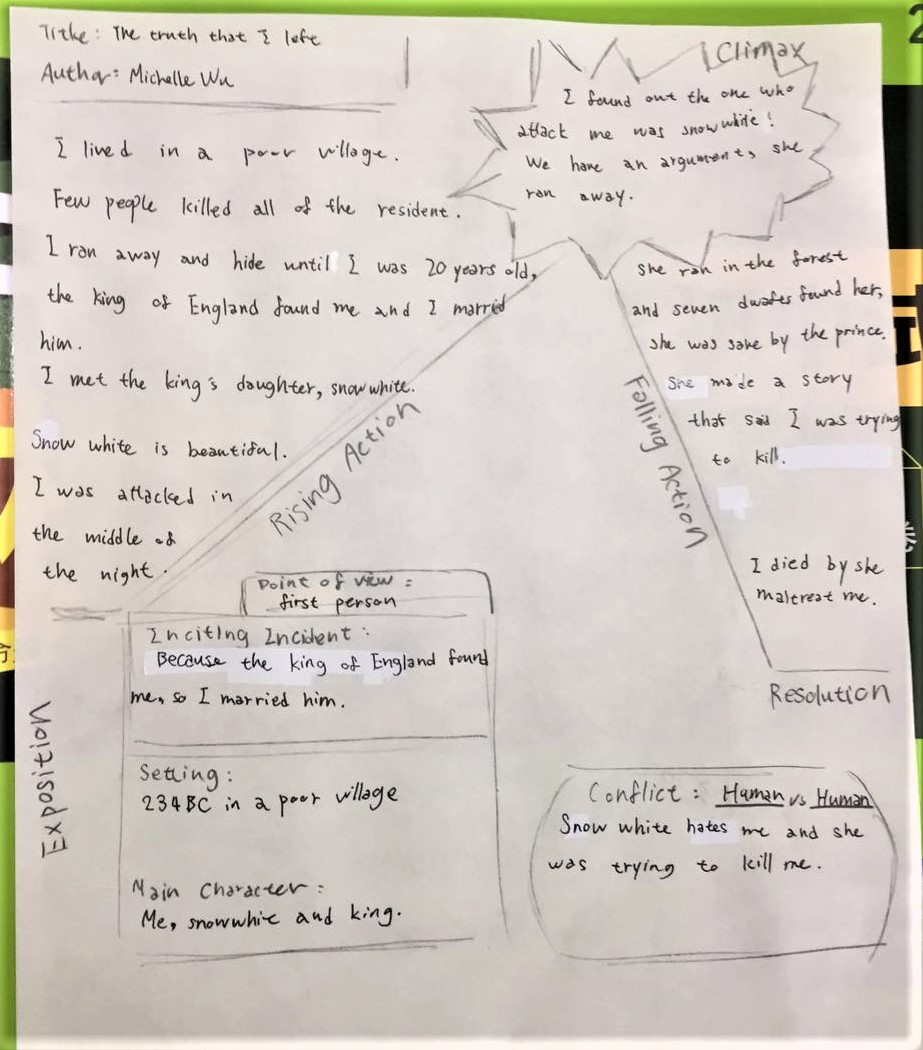 Title: The truth that I left
Author: Michelle Wu
I lived in a poor village.
Few people killed all of the resident.
I ran away and hide until I was 20 years old,
the king of England found me and I married
him.
I met the king's daughter, snowwhite.
Snow white is beautiful.
I was attacked in
the middle of
the night.
Rising Action
Climax
I found out the one who
attack me was snowwhite!
We have an arguments, she
ran away.
she ran in the forest
and seven dwafes found her,
she was save by the prince.
She made a story
that said I was trying
to kill.
Falling Action
I died by she
maltreat me.
Resolution
Point of view:
first person
Inciting Incident:
Because the king of England found
me, so I married him.
Exposition
Setting:
234BC in a poor village
Main Character:
Me, snowwhite and king.
Conflict: Human vs Human
Snow white hates me and she
was trying to kill me.